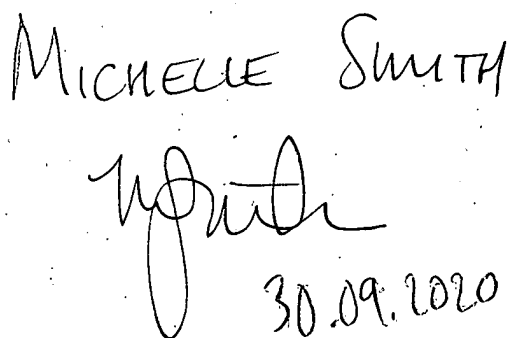 MICHELLE SMITH
MSmith
30.09.2020